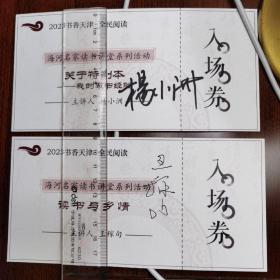 2023书香天津·全民阅读
海河名家读书讲堂系列活动
关于特制本
——我的做书经历
主讲人 杨小洲
楊小洲
入场券
2023书香天津·全民阅读
海河名家读书讲堂系列活动
读书与乡情
主讲人 王稼句
王稼句
入场券